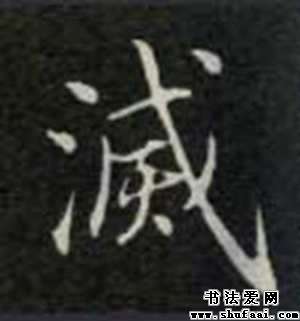 滅
书法爱网
www.shufaai.com